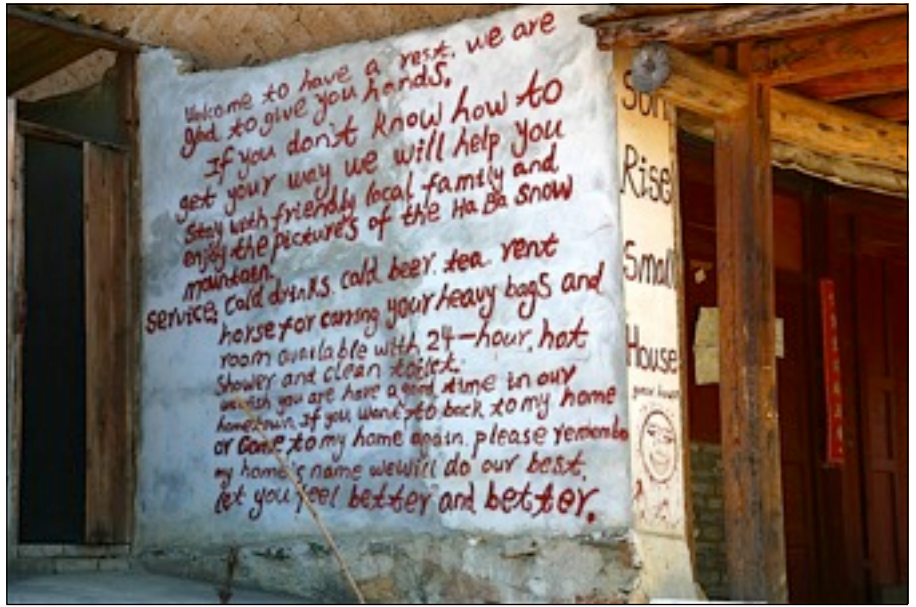 Welcome to have a rest. we are
glad to give you hands.
If you don't know how to
get your way we will help you
Stay with friendly local family and
enjoy the pictures of the Ha Ba Snow
mountain.
Service; cold drinks. cold beer. tea. rent
horse for carring your heavy bags and
room available with 24-hour. hot
Shower and clean toilet.
we wish you are have a good time in our
hometown. If you want to back to my home
or come to my home again. please remember
my home's name we will do our best.
let you feel better and better.
Sun
Rise
Small
House